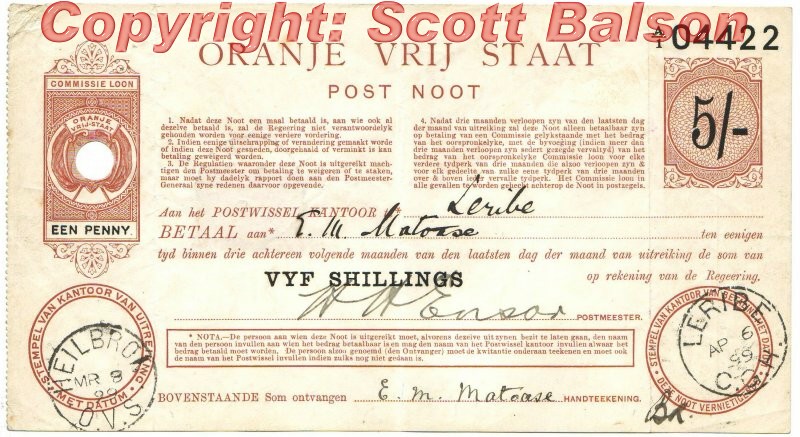 Copyright: Scott Balson
ORANJE VRIJ STAAT
A/1 04422
POST NOOT
COMMISSIE LOON
ORANJE
VRIJ-STAAT
EEN PENNY
5/-
1. Nadat deze Noot een maal betaald is, aan wie ook al
dezelve betaald is, zal de Regeering niet verantwoordelyk
gehouden worden voor eenige verdere vordering.
2. Indien eenige uitschrapping of verandering gemaakt worde
of indien deze Noot gesneden, doorgehaald of verminkt is kan
betaling geweigerd worden.
3. De Regulatien waaronder deze Noot is uitgereikt machtigen
den Postmeester om betaling te weigeren of te staken,
maar moet hy dadelyk rapport doen aan den Postmeester-
Generaal zyne redenen daarvoor opgevende.
4. Nadat drie maanden verloopen zyn van den laatsten dag
der maand van uitreiking zal deze Noot alleen betaalbaar zyn
op betaling van een Commissie gelykstaande met het bedrag
van het oorspronkelyke, met de byvoeging (indien meer dan
drie maanden verloopen zyn sedert gezegde vervaltyd) van het
bedrag van de oorspronkelyke Commissie loon voor elke
verdere tydperk van drie maanden die alzoo verloopen zyn &
voor elk gedeelte van zulke eene tydperk van drie maanden
over & boven ieder vervalle tydperk. Het Commissie loon in
alle gevallen te worden gehecht achterop de Noot in postzegels.
Aan het POSTWISSEL KANTOOR te* Leribe
BETAAL aan* E. M. Matoase ten eenigen
tyd binnen drie achtereen volgende maanden van den laatsten dag der maand van uitreiking de som van
VYF SHILLINGS op rekening van de Regeering.
POSTMEESTER.
* NOTA.—De persoon aan wien deze Noot is uitgereikt moet, alvorens dezelve uit zyn bezit te laten gaan, den naam
van den persoon invullen aan wien het bedrag betaalbaar is en mag den naam van het Postwissel kantoor invullen alwaar het
bedrag betaald moet worden. De persoon alzoo genoemd (den Ontvanger) moet de kwitantie onderaan teekenen en moet ook
de naam van het Postwissel kantoor invullen indien zulks nog niet gedaan is.
STEMPEL VAN KANTOOR VAN UITREIKING
MET DATUM
HEILBRON
MR 8
99
O.V.S.
STEMPEL VAN KANTOOR VAN BETALING MET DATUM
DEZE NOOT VERNIETIGEND
LERIBE
AP 6
99
BOVENSTAANDE Som ontvangen E. M. Matoase HANDTEEKENING.